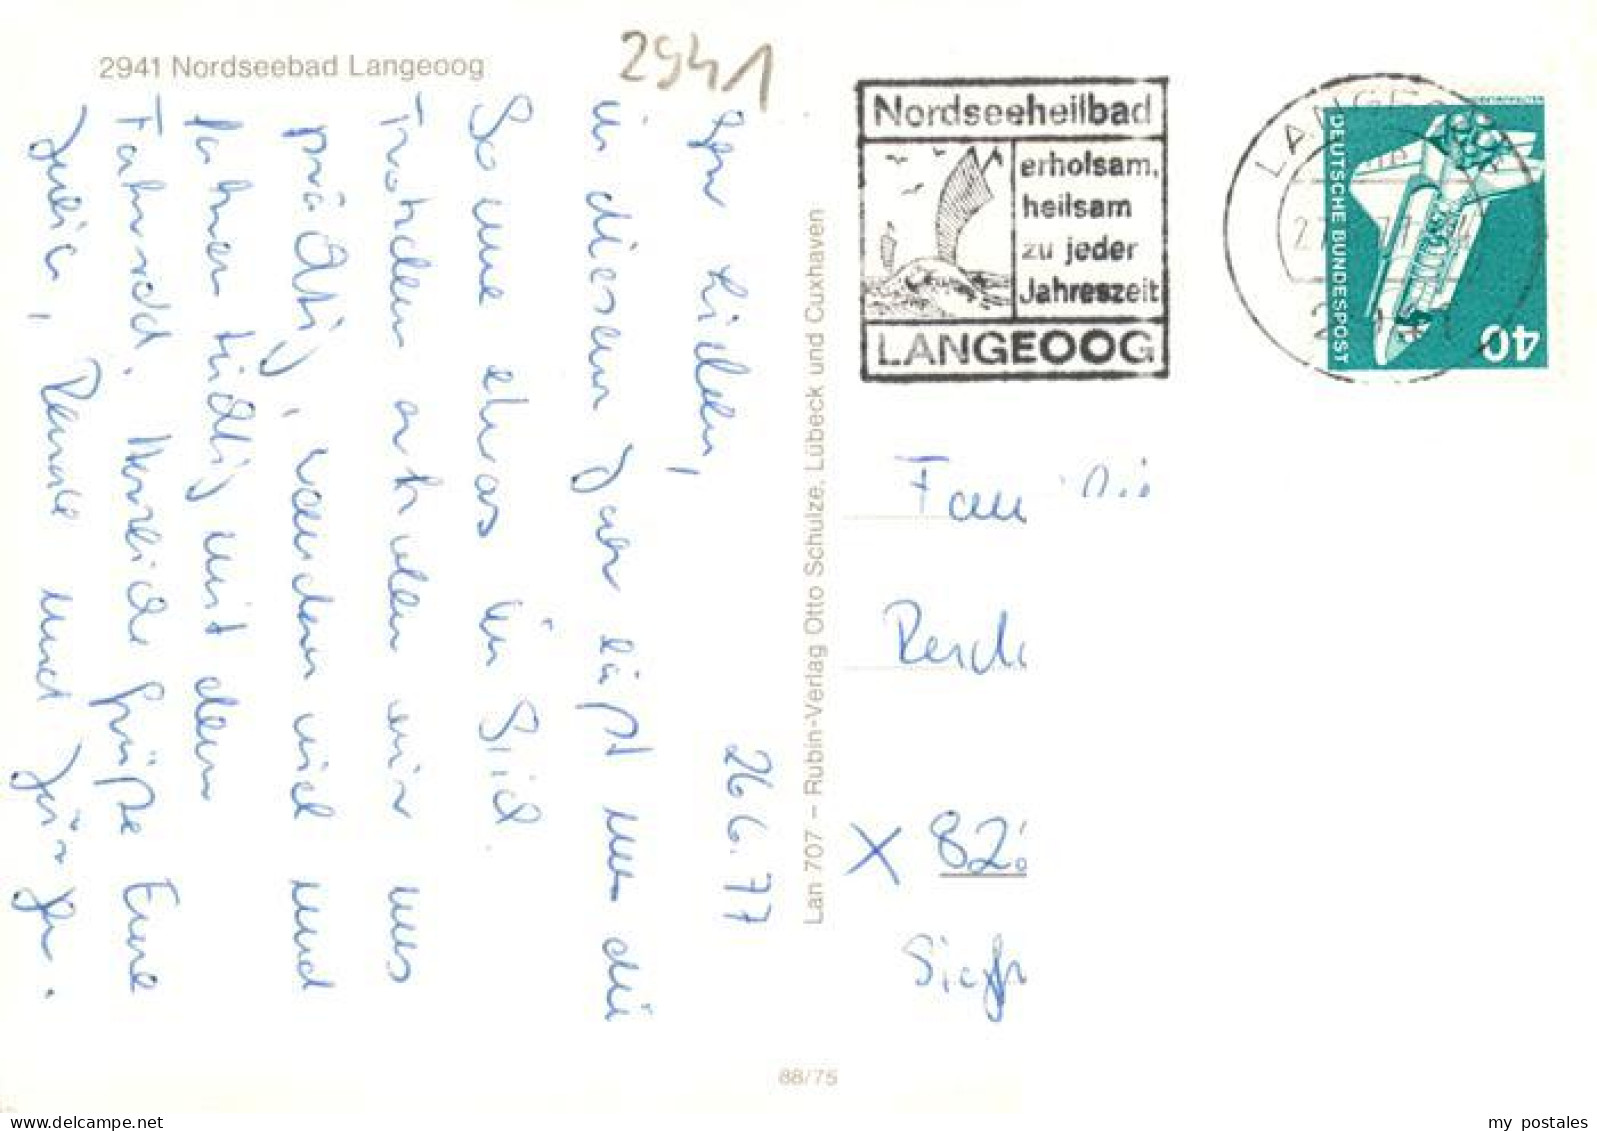 2941 Nordseebad Langeoog
2941
Ihr Lieben,
26.6.77
in diesem Jahr läßt uns die
Sonne etwas im Stich.
Trotzdem erholen wir uns
prächtig, wandern viel und
fahren tüchtig mit dem
Fahrrad. Herzliche Grüße Eure
Renate und Jürgen.
Lan 707 – Rubin-Verlag Otto Schulze, Lübeck und Cuxhaven
88/75
Nordseeheilbad
erholsam,
heilsam
zu jeder
Jahreszeit
LANGEOOG
LANGEOOG
2941
DEUTSCHE BUNDESPOST
40
Fam
X 82
delcampe.net
my_postales